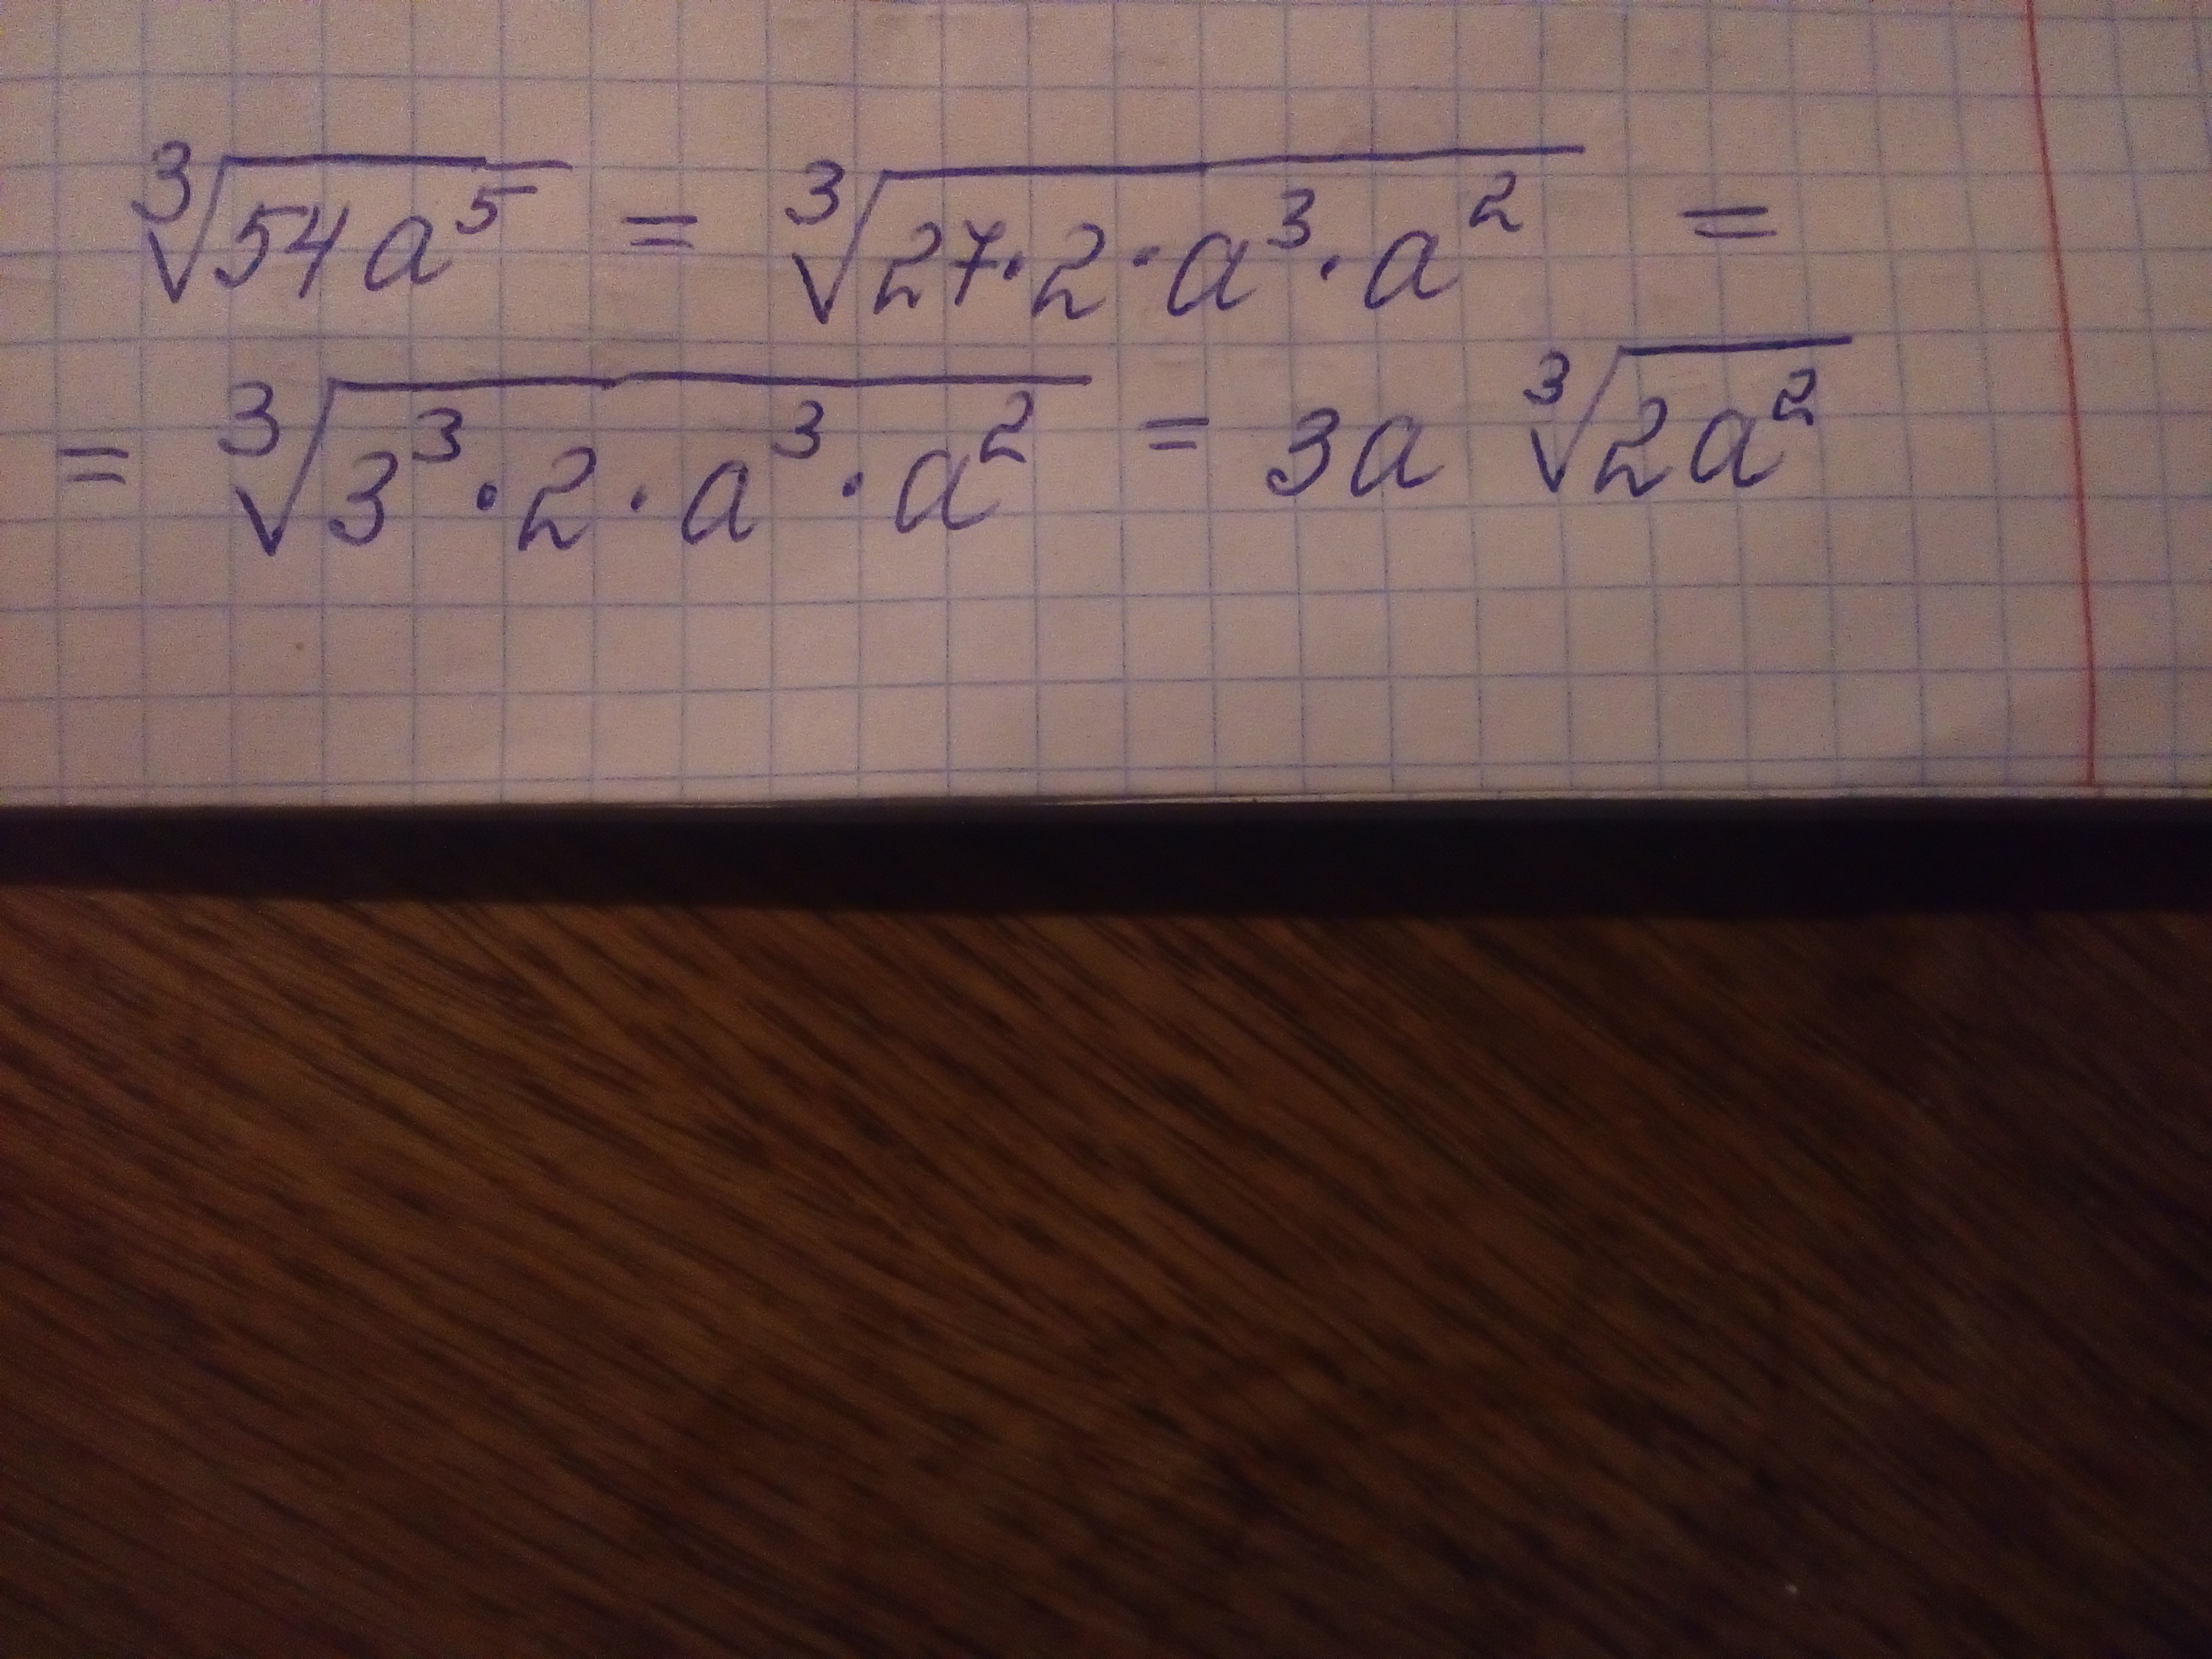 ∛54a⁵ = ∛27·2·a³·a² =
= ∛3³·2·a³·a² = 3a ∛2a²